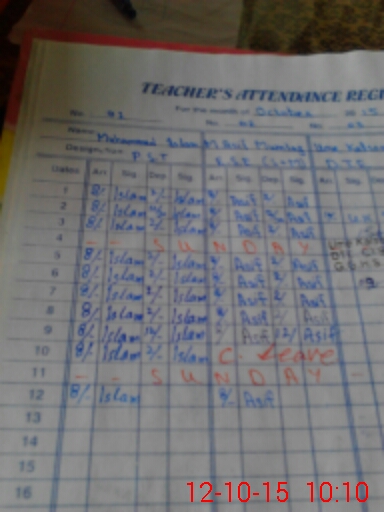 TEACHER'S ATTENDANCE REGI
No 01 For the month of October 2015
No. 02 No. 03
Name Muhammad Islam M Asif Mumtaz
Designation P.S.T
Dates Arr Sig. Dep Sig. Arr Sig. Dep Sig. Arr Sig.
1 8/- Islam 2/- Islam 8/ Asif 2/ Asif
2 8/- Islam Islam Asif Asif
3 8/- Islam 2/- Islam 8/ Asif 2/ Asif
4 - - S U N D A Y
5 8/- Islam 2/- Islam 8/ Asif 2/ Asif
6 8/- Islam 2/- Islam 8/ Asif 2/ Asif
7 8/- Islam 2/- Islam 8/ Asif 2/ Asif
8 8/- Islam 2/- Islam 8/ Asif 2/ Asif
9 8/- Islam 12/- Islam 8/ Asif 12/ Asif
10 8/- Islam 2/- Islam C. Leave
11 - - S U N D A Y -
12 8/- Islam 8/- Asif
13
14
15
16
12-10-15 10:10